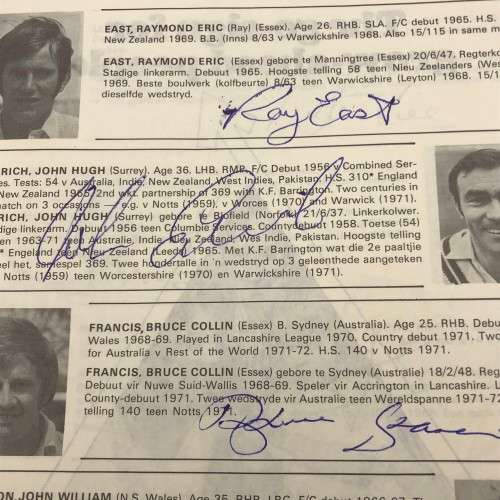 EAST, RAYMOND ERIC (Ray) (Essex). Age 26. RHB. SLA. F/C debut 1965. H.S.
New Zealand 1969. B.B. (Inns) 8/63 v Warwickshire 1968. Also 15/115 in same m
EAST, RAYMOND ERIC (Essex) gebore te Manningtree (Essex) 20/6/47. Regterko
Stadige linkerarm. Debuut 1965. Hoogste telling 58 teen Nieu Zeelanders (Wes
1969. Beste boulwerk (kolfbeurte) 8/63 teen Warwickshire (Leyton) 1968. 15/1
dieselfde wedstryd.
Ray East
RICH, JOHN HUGH (Surrey). Age 36. LHB. RMP. F/C Debut 1956 v Combined Ser-
es. Tests: 54 v Australia, India, New Zealand, West Indies, Pakistan. H.S. 310* England
New Zealand 1965. 2nd wkt. partnership of 369 with K.F. Barrington. Two centuries in
match on 3 occasions e.g. v Notts (1959), v Worces (1970) and Warwick (1971).
RICH, JOHN HUGH (Surrey) gebore te (Norfolk) 21/6/37. Linkerkolwer.
debuut 1956 teen Combined Services. Countydebuut 1958. Toetse (54)
en 1963-71 teen Australië, Indië, Nieu Zeeland, Wes Indië, Pakistan. Hoogste telling
* Engeland teen Nieu Zeeland (Leeds) 1965. Met K.F. Barrington wat die 2e paaltjie
eel het, samespel 369. Twee hondertalle in 'n wedstryd op 3 geleenthede aangeteken
Notts (1959) teen Worcestershire (1970) en Warwickshire (1971).
FRANCIS, BRUCE COLLIN (Essex) B. Sydney (Australia). Age 25. RHB. Debut
Wales 1968-69. Played in Lancashire League 1970. Country debut 1971. Two
for Australia v Rest of the World 1971-72. H.S. 140 v Notts 1971.
FRANCIS, BRUCE COLLIN (Essex) gebore te Sydney (Australië) 18/2/48. Reg
Debuut vir Nuwe Suid-Wallis 1968-69. Speler vir Accrington in Lancashire. L
County-debuut 1971. Twee wedstryde vir Australië teen Wereldspanne 1971-72
telling 140 teen Notts 1971.
ON, JOHN WILLIAM (N.S. Wales). Age 35. RHB. LBG. F/C debut